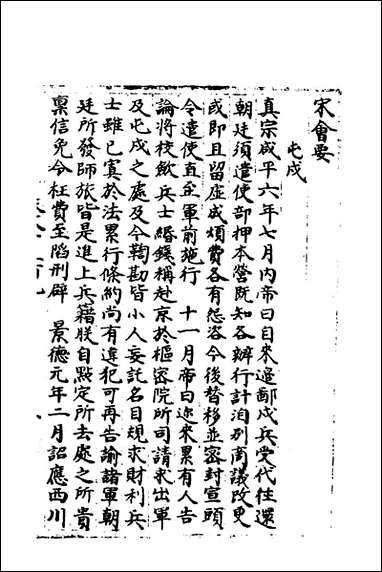 宋會要
屯戍
真宗咸平六年七月內帝曰自來邊鄙戍兵受代往還
朝廷須遣使部押本營既知各辦行計洎別商議改更
或即且留虛成煩費各有怨咨今後替移並密封宣頭
令遣使直至軍前施行　十一月帝曰近來累有人告
論將校斂兵士緡錢稱赴京於樞密院所司請求出軍
及屯戍之處及令鞫勘皆小人妄託名目規求財利兵
士雖已寘於法累行條約尚有違犯可再告諭諸軍朝
廷所發師旅皆是進上兵藉朕自點定所去處之所貴
稟信免令枉費至陷刑辟　景德元年二月詔應西川